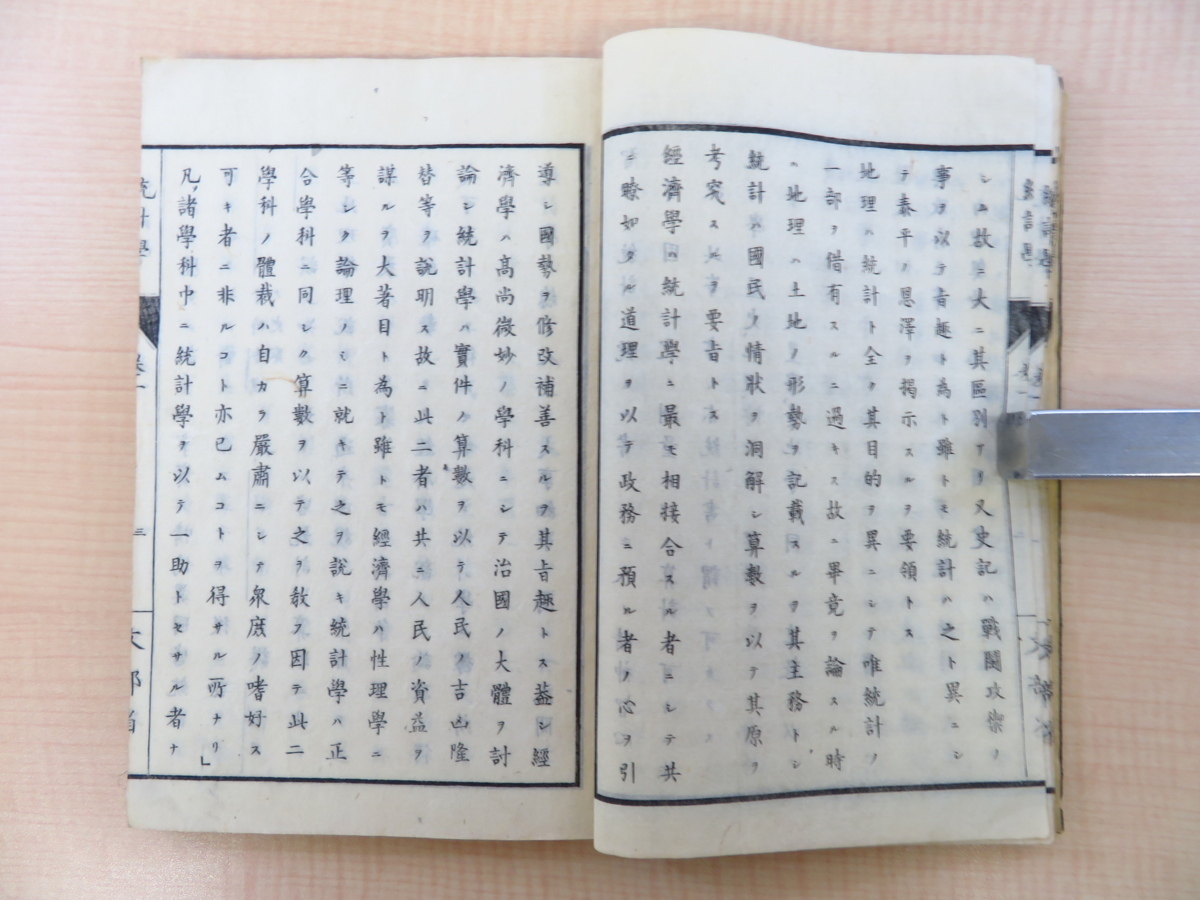 シム故ニ大ニ其區別アリ又史記ハ戰鬪攻禦ノ
事ヲ以テ旨趣ト為ト雖トモ統計ハ之ト異ニシ
テ泰平ノ恩澤ヲ揭示スルヲ要領トス
地理ハ統計ト全ク其目的ヲ異ニシテ唯統計ノ
一部ヲ借有スルニ過キス故ニ畢竟ヲ論スル時
ハ地理ハ土地ノ形勢ヲ記載スルヲ其主務トシ
統計ハ國民ノ情狀ヲ洞解シ算數ヲ以テ其原ヲ
考究スルヲ要旨トス
經濟學ハ統計學ニ最モ相接合スル者ニシテ共
ニ瞭如タル道理ヲ以テ政務ニ預ル者ノ心ヲ引
導シ國勢ヲ修改補善スルヲ其旨趣トス蓋シ經
濟學ハ高尚微妙ノ學科ニシテ治國ノ大體ヲ討
論シ統計學ハ實件ノ算數ヲ以テ人民ノ吉凶隆
替等ヲ說明ス故ニ此二者ハ共ニ人民ノ資益ヲ
謀ルヲ大著目ト為ト雖トモ經濟學ハ性理學ニ
等シク論理ノミニ就キテ之ヲ說キ統計學ハ正
合學科ニ同シク算數ヲ以テ之ヲ敎フ因テ此二
學科ノ體裁ハ自カラ嚴肅ニシテ衆庶ノ嗜好ス
可キ者ニ非ルコト亦已ムコトヲ得サル所ナリ」
凡ソ諸學科中ニ統計學ヲ以テ一助トセサル者ナ
統計學 卷一 三